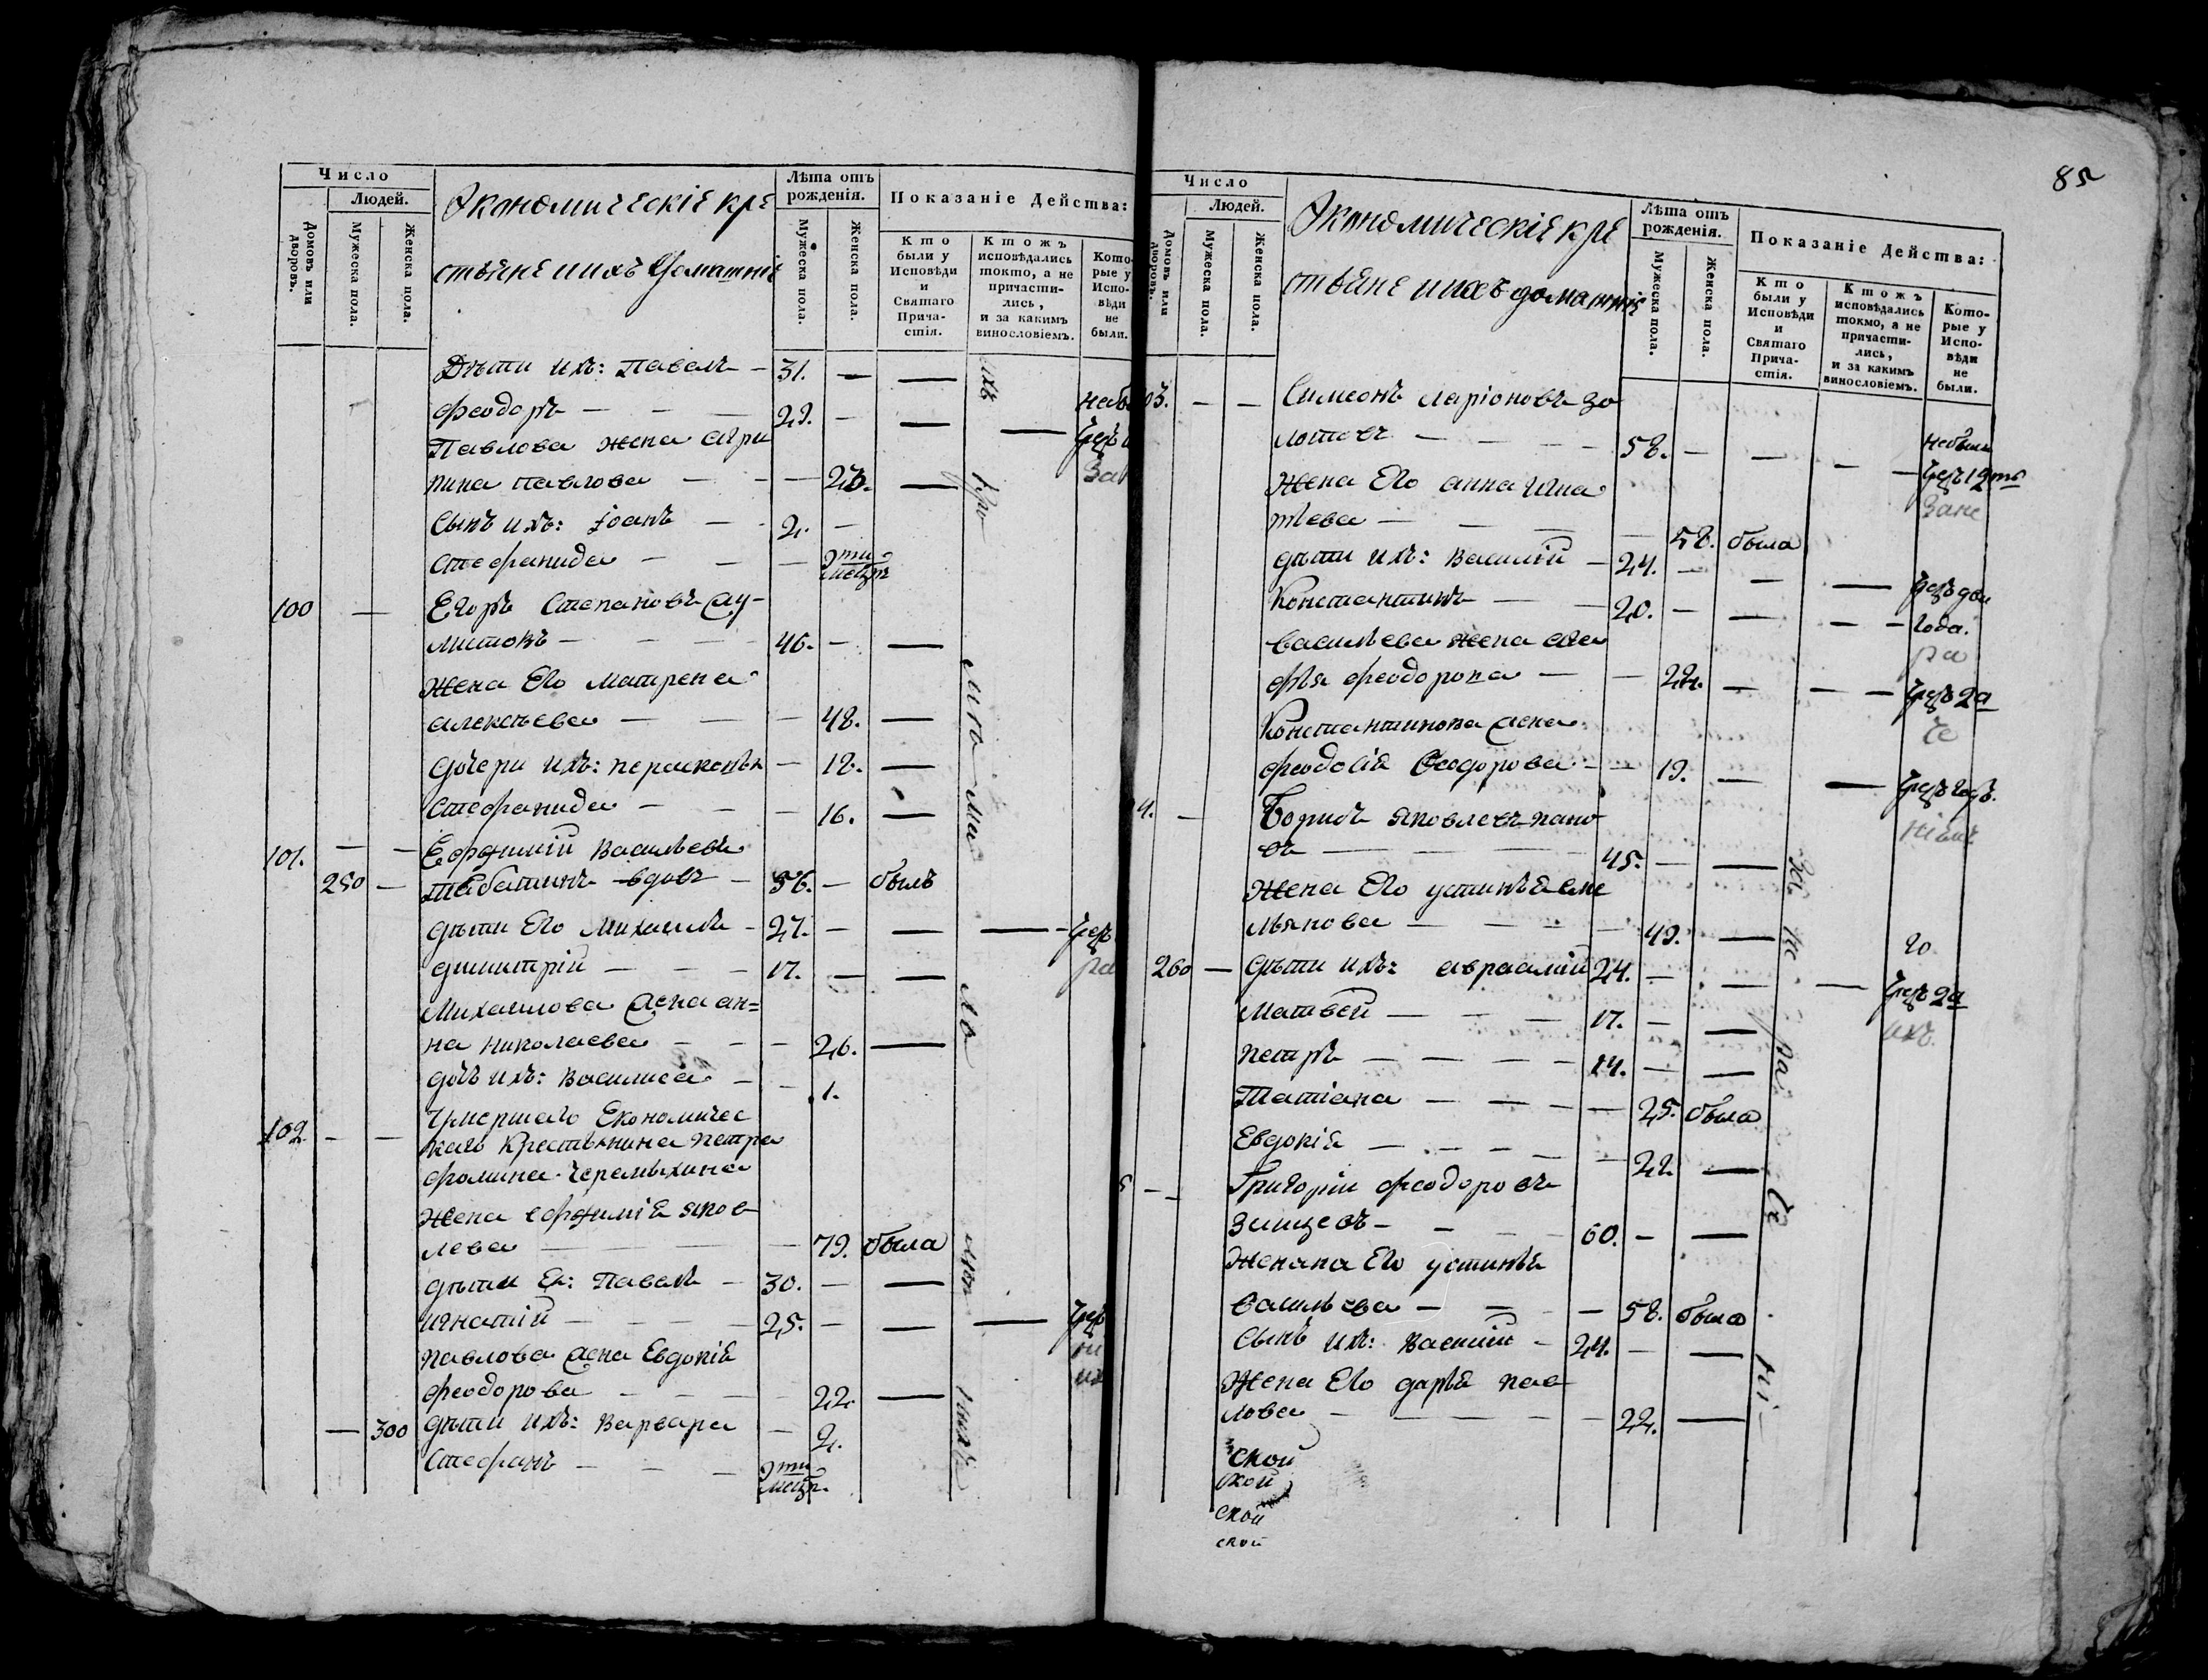 Число
Людей.
Домовъ или дворовъ.
Мужеска пола.
Женска пола.
Экономическіе кре
стьяне и ихъ домашніе
Лѣта отъ рожденія.
Мужеска пола.
Женска пола.
Показаніе Действа:
Кто были у Исповѣди и Святаго Причастія.
Ктожъ исповѣдались токмо, а не причастились, и за какимъ винословіемъ.
Кото-
рые у
Испо-
вѣди
не
были.
Дѣти ихъ: Павелъ — 31. — —
Феодоръ — — — 22. — — —
Павлова жена Агри
пина Павлова — — — 23. —
Сынъ ихъ: Іоанъ — — 2. —
Стефанида — — — 9ти мецовъ
100 — Егоръ Степановъ
листовъ — — — 46. — —
Жена Его Матрена
Алексѣева — — — 48. —
дочери ихъ: Пераскевья — 18. —
Стефанида — — — 16. —
101. — — Ефѳимій Васильевъ
250 — вдовъ — 56. — былъ
дѣти Его Михаилъ — 27. — — —
димитрій — — — 17. — —
Михаилова жена ан=
на николаева — — — 26. —
дочь ихъ: Василиса — — 1.
102. — — Умершаго Економичес
каго Крестьянина Петра
фомина Черемыхина
Жена ефѳимія яков
лева — — — — 79. была
дѣти Ея: Павелъ — 30. — —
игнатій — — — — 25. — — —
павлова жена Евдокія
феодорова — — — — 22. —
— 300 дѣти ихъ: Варвара — 2.
Стефанъ — — — 9ти мецовъ
85
Число
Людей.
Домовъ или дворовъ.
Мужеска пола.
Женска пола.
Экономическіе кре
стьяне и ихъ домашніе
Лѣта отъ рожденія.
Мужеска пола.
Женска пола.
Показаніе Действа:
Кто были у Исповѣди и Святаго Причастія.
Ктожъ исповѣдались токмо, а не причастились, и за какимъ винословіемъ.
Кото-
рые у
Испо-
вѣди
не
были.
03. — — Симеонъ ларіоновъ зо
лотовъ — — — — 58. — — — —
Жена Его анна Игна
тьева — — — — 58. была
дѣти ихъ: Василій — 24. — — —
Константинъ — — 20. — — — — года.
Васильева жена
феодорова — — 22. — — —
Константинова жена
феодосія Феодорова — — 19. — —
4. — Борисъ Яковлевъ пано
въ — — — 45. — —
Жена Его устинья еме
льянова — — — — 49. —
260 — дѣти ихъ: авраамій 24. — — —
Матвей — — — 17. — —
петръ — — — — 14. — —
Татіана — — — — 25. была
Евдокія — — — — — 22. —
5 — — Григорій феодоровъ
Зайцевъ — — — — 60. — —
Женана Его устинья
Васильева — — — — 58. была
Сынъ ихъ: Василій — 24. — —
Жена Его дарья пав
лова — — — — — — 22. —
ской
ской
ской
ской